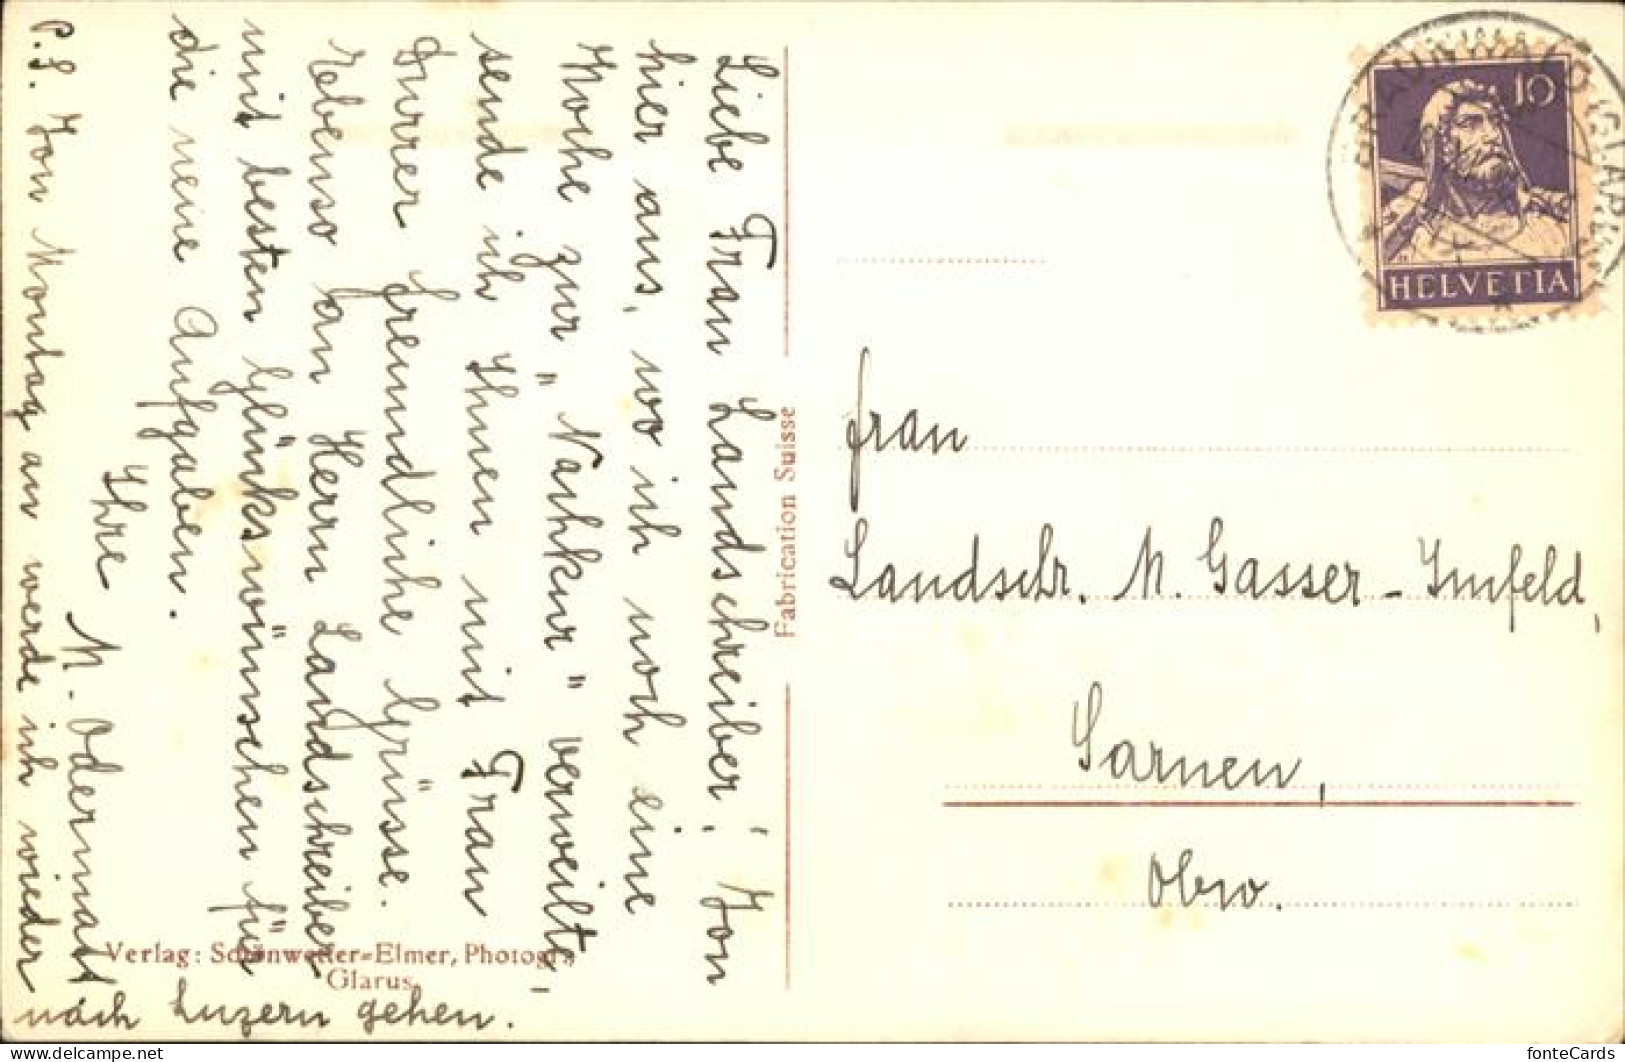 Liebe Frau Landschreiber! Von
hier aus, wo ich noch eine
Woche zur "Nachkur" verweilte,
sende ich Ihnen mit Frau
Durrer freundliche Grüsse.
Ebenso an Herrn Landschreiber
mit besten Glückswünschen für
die neue Aufgaben.
Ihre M. Odermatt
P.S. Von Montag an werde ich wieder
nach Luzern gehen.
Verlag: Schönwetter-Elmer, Photogr.,
Glarus
Fabrication Suisse
BRAUNWALD (GLARUS)
10
HELVETIA
Frau
Landschr. M. Gasser-Imfeld,
Sarnen,
Obw.
fonteCards
www.delcampe.net